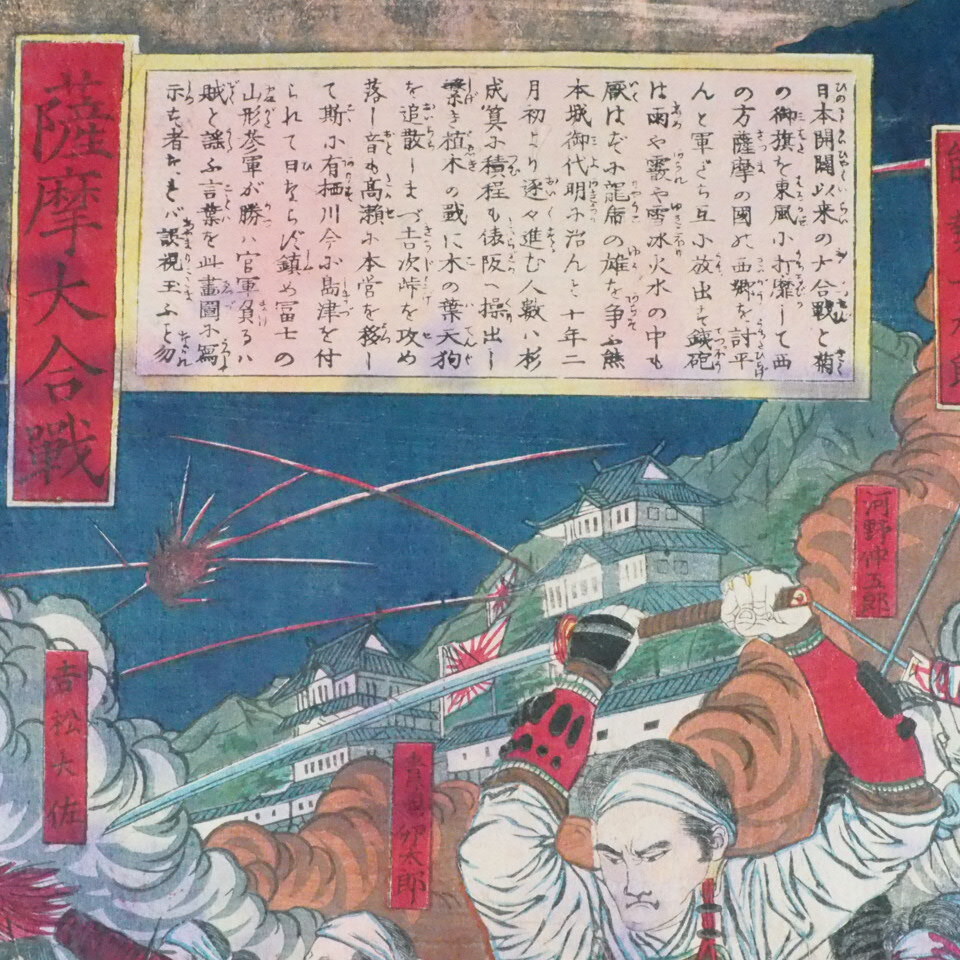 薩摩大合戰
日本開闢以来の大合戰と菊
の御旗を東風小打靡して西
の方薩摩の國の西郷を討平
んと軍だち互小放出す鐡砲
は雨や霰や雪氷火水の中も
厭はずホ龍虎の雄を争ふ熊
本城御代明ホ治んと十年二
月初より逐々進む人数ハ杉
成箕ホ積程も俵阪へ操出し
繁き植木の戰に木の葉天狗
を追散しまづ吉次峠を攻め
落し音も髙瀬ホ本営を移し
て斯ホ有栖川今ぞ島津を付
られて日ならば鎮め冨士の
山形参軍が勝ハ官軍負るハ
賊と謡ふ言葉を此畫圖ホ寫
示す者
誤視玉ふと勿
河野仲五郎
吉松大佐